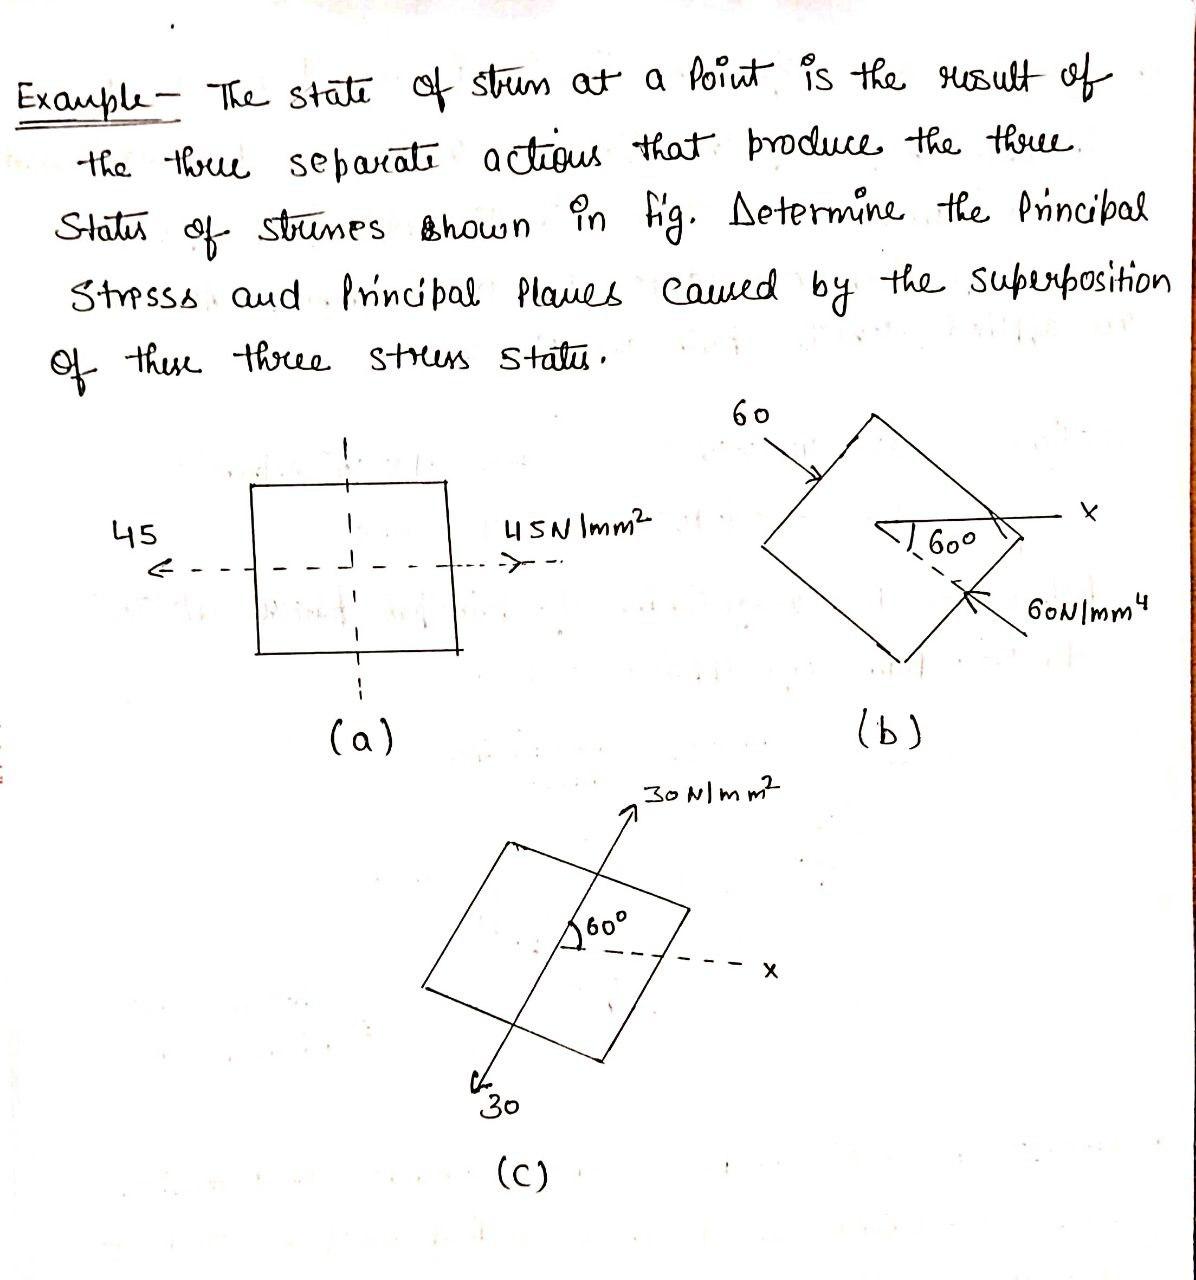 Example - The state of stress at a Point is the result of
the three separate actions that produce the three
States of stresses shown in fig. Determine the Principal
Stresss and Principal Planes caused by the superposition
of these three stress states.
45
45N/mm²
(a)
60
x
60°
60N/mm⁴
(b)
30N/mm²
60°
x
30
(c)